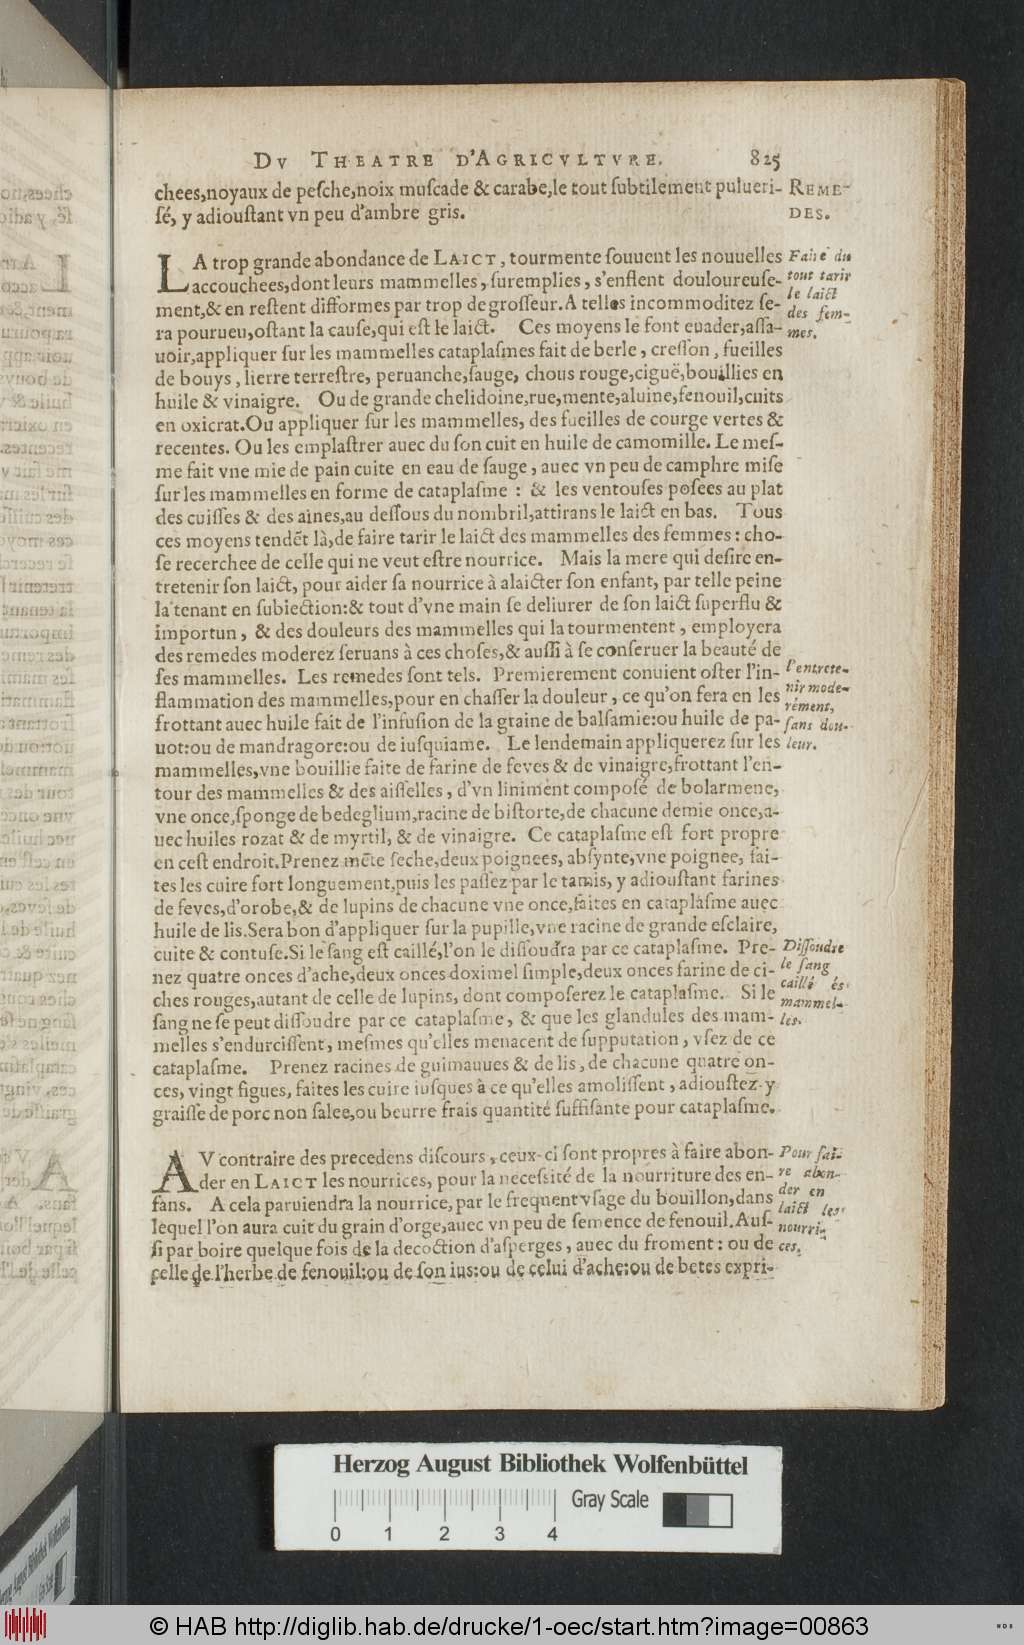 DV THEATRE D'AGRICVLTVRE. 825
chees,noyaux de peſche,noix muſcade & carabe,le tout ſubtilement pulueri-
ſé, y adiouſtant vn peu d'ambre gris.
REME-
DES.
LA trop grande abondance de LAICT, tourmente ſouuent les nouuelles
accouchees,dont leurs mammelles, ſuremplies, s'enflent douloureuſe-
ment,& en reſtent difformes par trop de groſſeur. A telles incommoditez ſe-
ra pourueu,oſtant la cauſe,qui eſt le laict. Ces moyens le font euader,aſſa-
uoir,appliquer ſur les mammelles cataplaſmes fait de berle, creſſon, fueilles
de bouys, lierre terreſtre, peruanche,ſauge, chous rouge,ciguë,bouillies en
huile & vinaigre. Ou de grande chelidoine,rue,mente,aluine,fenouil,cuits
en oxicrat.Ou appliquer ſur les mammelles, des fueilles de courge vertes &
recentes. Ou les emplaſtrer auec du ſon cuit en huile de camomille. Le meſ-
me fait vne mie de pain cuite en eau de ſauge, auec vn peu de camphre miſe
ſur les mammelles en forme de cataplaſme : & les ventouſes poſees au plat
des cuiſſes & des aines,au deſſous du nombril,attirans le laict en bas. Tous
ces moyens tendēt là,de faire tarir le laict des mammelles des femmes : cho-
ſe recerchee de celle qui ne veut eſtre nourrice. Mais la mere qui deſire en-
tretenir ſon laict, pour aider ſa nourrice à alaicter ſon enfant, par telle peine
la tenant en ſubiection:& tout d'vne main ſe deliurer de ſon laict ſuperflu &
importun, & des douleurs des mammelles qui la tourmentent, employera
des remedes moderez ſeruans à ces choſes,& auſſi à ſe conſeruer la beauté de
ſes mammelles. Les remedes ſont tels. Premierement conuient oſter l'in-
flammation des mammelles,pour en chaſſer la douleur, ce qu'on fera en les
frottant auec huile fait de l'infuſion de la graine de balſamie:ou huile de pa-
uot:ou de mandragore:ou de iuſquiame. Le lendemain appliquerez ſur les
mammelles,vne bouillie faite de farine de feves & de vinaigre,frottant l'en-
tour des mammelles & des aiſſelles, d'vn liniment compoſé de bolarmene,
vne once,ſponge de bedeglium,racine de biſtorte,de chacune demie once,a-
uec huiles rozat & de myrtil, & de vinaigre. Ce cataplaſme eſt fort propre
en ceſt endroit.Prenez mēte ſeche,deux poignees, abſynte,vne poignee, fai-
tes les cuire fort longuement,puis les paſſez par le tamis, y adiouſtant farines
de feves,d'orobe,& de lupins de chacune vne once,faites en cataplaſme auec
huile de lis.Sera bon d'appliquer ſur la pupille,vne racine de grande eſclaire,
cuite & contuſe.Si le ſang eſt caillé,l'on le diſſoudra par ce cataplaſme. Pre-
nez quatre onces d'ache,deux onces doximel ſimple,deux onces farine de ci-
ches rouges,autant de celle de lupins, dont compoſerez le cataplaſme. Si le
ſang ne ſe peut diſſoudre par ce cataplaſme, & que les glandules des mam-
melles s'endurciſſent, meſmes qu'elles menacent de ſupputation, vſez de ce
cataplaſme. Prenez racines de guimauues & de lis, de chacune quatre on-
ces, vingt figues, faites les cuire iuſques à ce qu'elles amoliſſent, adiouſtez y
graiſſe de porc non ſalee,ou beurre frais quantité ſuffiſante pour cataplaſme.
Faire du
tout tarir
le laict
des fem-
mes.
l'entrete-
nir mode-
rément,
ſans dou-
leur.
Diſſoudre
le ſang
caillé és
mammel-
les.
AV contraire des precedens diſcours, ceux-ci ſont propres à faire abon-
der en LAICT les nourrices, pour la neceſsité de la nourriture des en-
fans. A cela paruiendra la nourrice, par le frequent vſage du bouillon,dans
lequel l'on aura cuit du grain d'orge,auec vn peu de ſemence de fenouil. Auſ-
ſi par boire quelque fois de la decoction d'aſperges, auec du froment : ou de
celle de l'herbe de fenouil:ou de ſon ius:ou de celui d'ache:ou de betes expri-
Pour fai-
re abon-
der en
laict les
nourri-
ces.
Herzog August Bibliothek Wolfenbüttel
Gray Scale
0 1 2 3 4
© HAB http://diglib.hab.de/drucke/1-oec/start.htm?image=00863